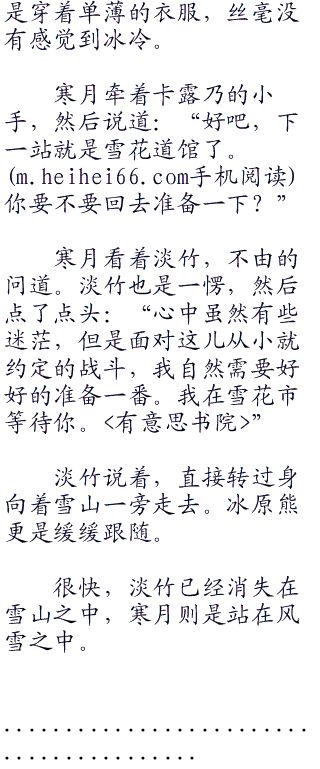 是穿着单薄的衣服，丝毫没
有感觉到冰冷。
寒月牵着卡露乃的小
手，然后说道：“好吧，下
一站就是雪花道馆了。
(m.heihei66.com手机阅读)
你要不要回去准备一下？”
寒月看着淡竹，不由的
问道。淡竹也是一愣，然后
点了点头：“心中虽然有些
迷茫，但是面对这儿从小就
约定的战斗，我自然需要好
好的准备一番。我在雪花市
等待你。<有意思书院>”
淡竹说着，直接转过身
向着雪山一旁走去。冰原熊
更是缓缓跟随。
很快，淡竹已经消失在
雪山之中，寒月则是站在风
雪之中。
.........................
................